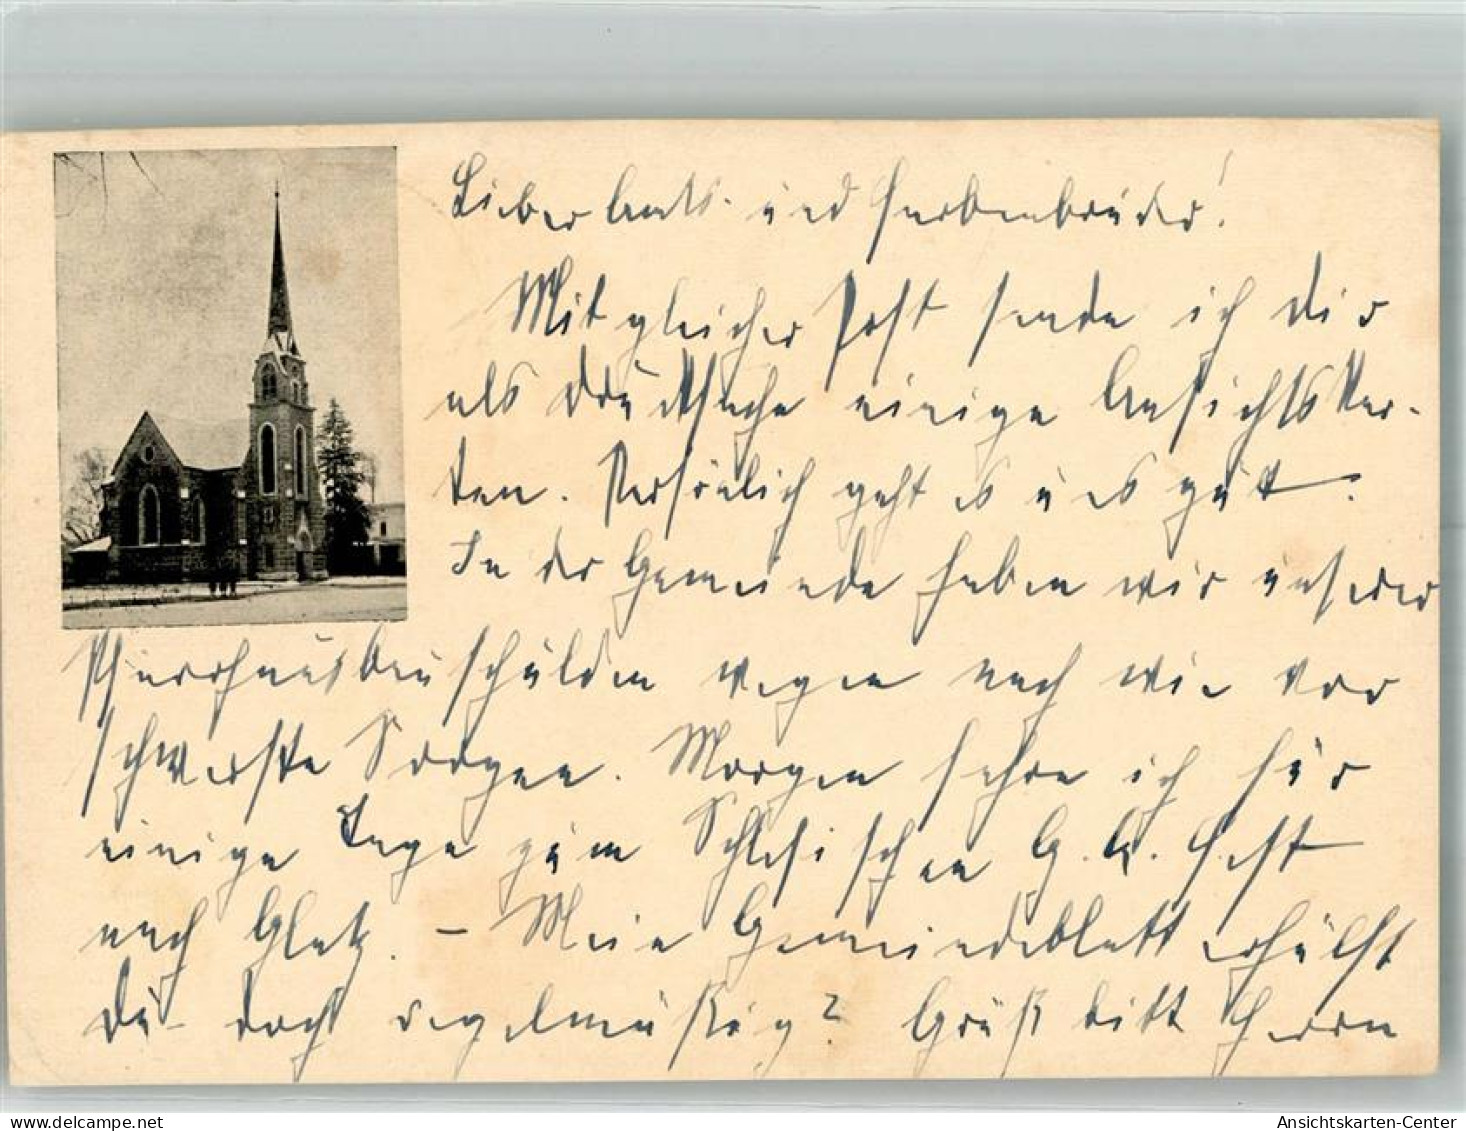 Lieber Amts- und Farbenbruder!
Mit gleicher Post sende ich Dir
als Drucksache einige Ansichtskar-
ten. Persönlich geht es uns gut.
In der Gemeinde haben wir unserer
Pfarrhausbauschulden wegen nach wie vor
schwerste Sorgen. Morgen fahre ich für
einige Tage zum Schlesischen G. A. Fest
nach Glatz. – Mein Gemeindeblatt erhältst
Du doch regelmäßig? Grüß bitte Herrn
Ansichtskarten-Center